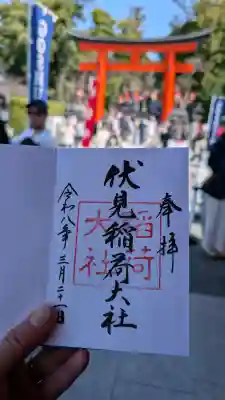 奉拝
伏見稲荷大社
稲荷
大社
令和八年三月二十一日